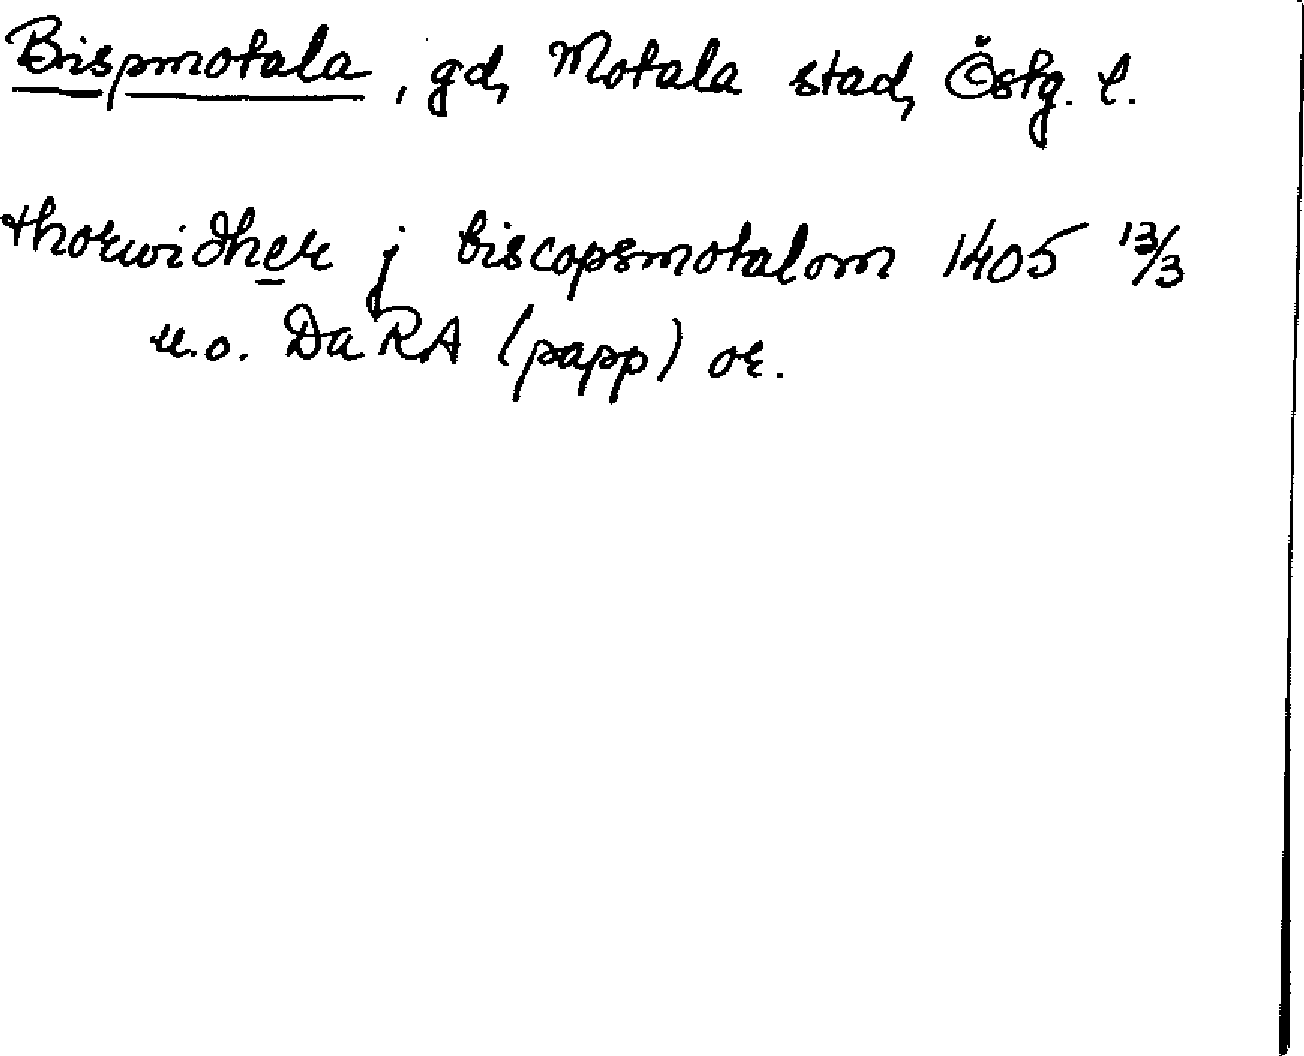 Bispmotala, gd, Motala stad, Östg. l.
thorwidher j biscopsmotalom 1405 13/3
u.o. Da RA (papp) or.